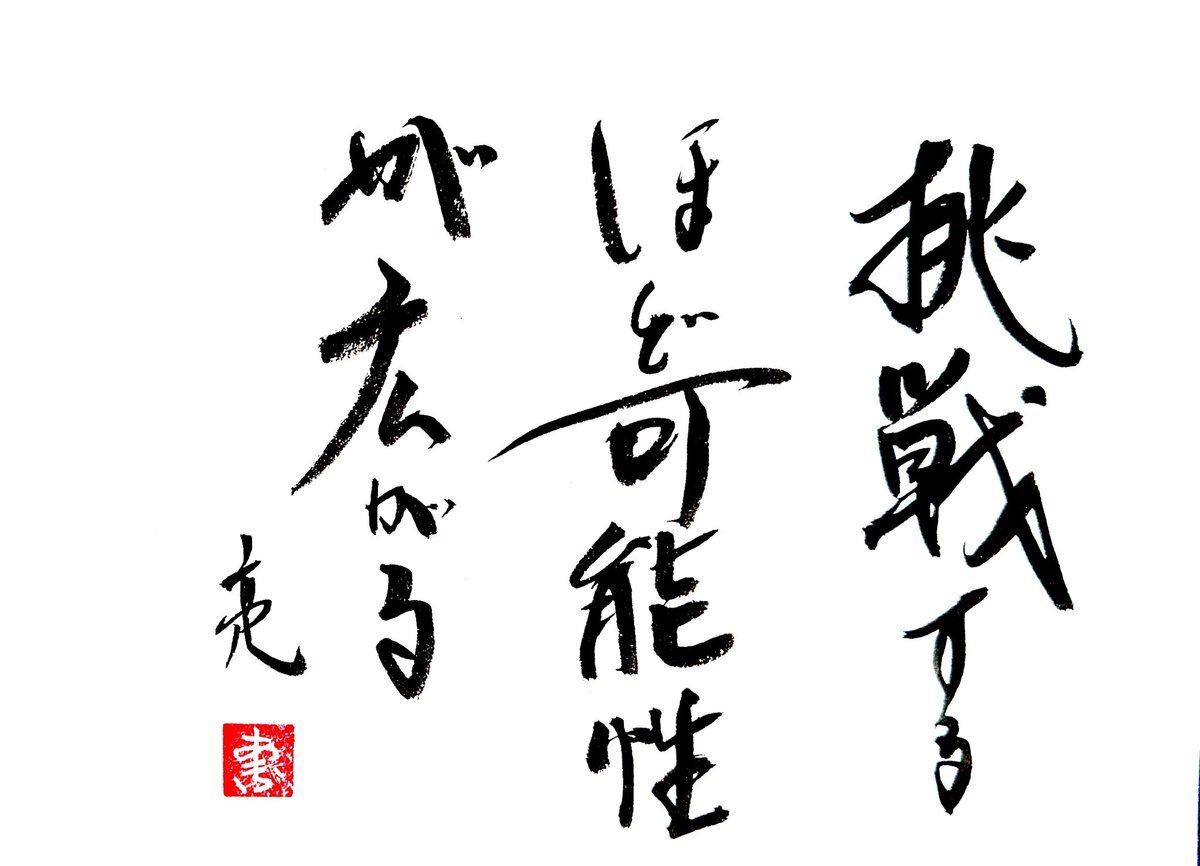 挑戦する
ほど可能性
が広がる
亮